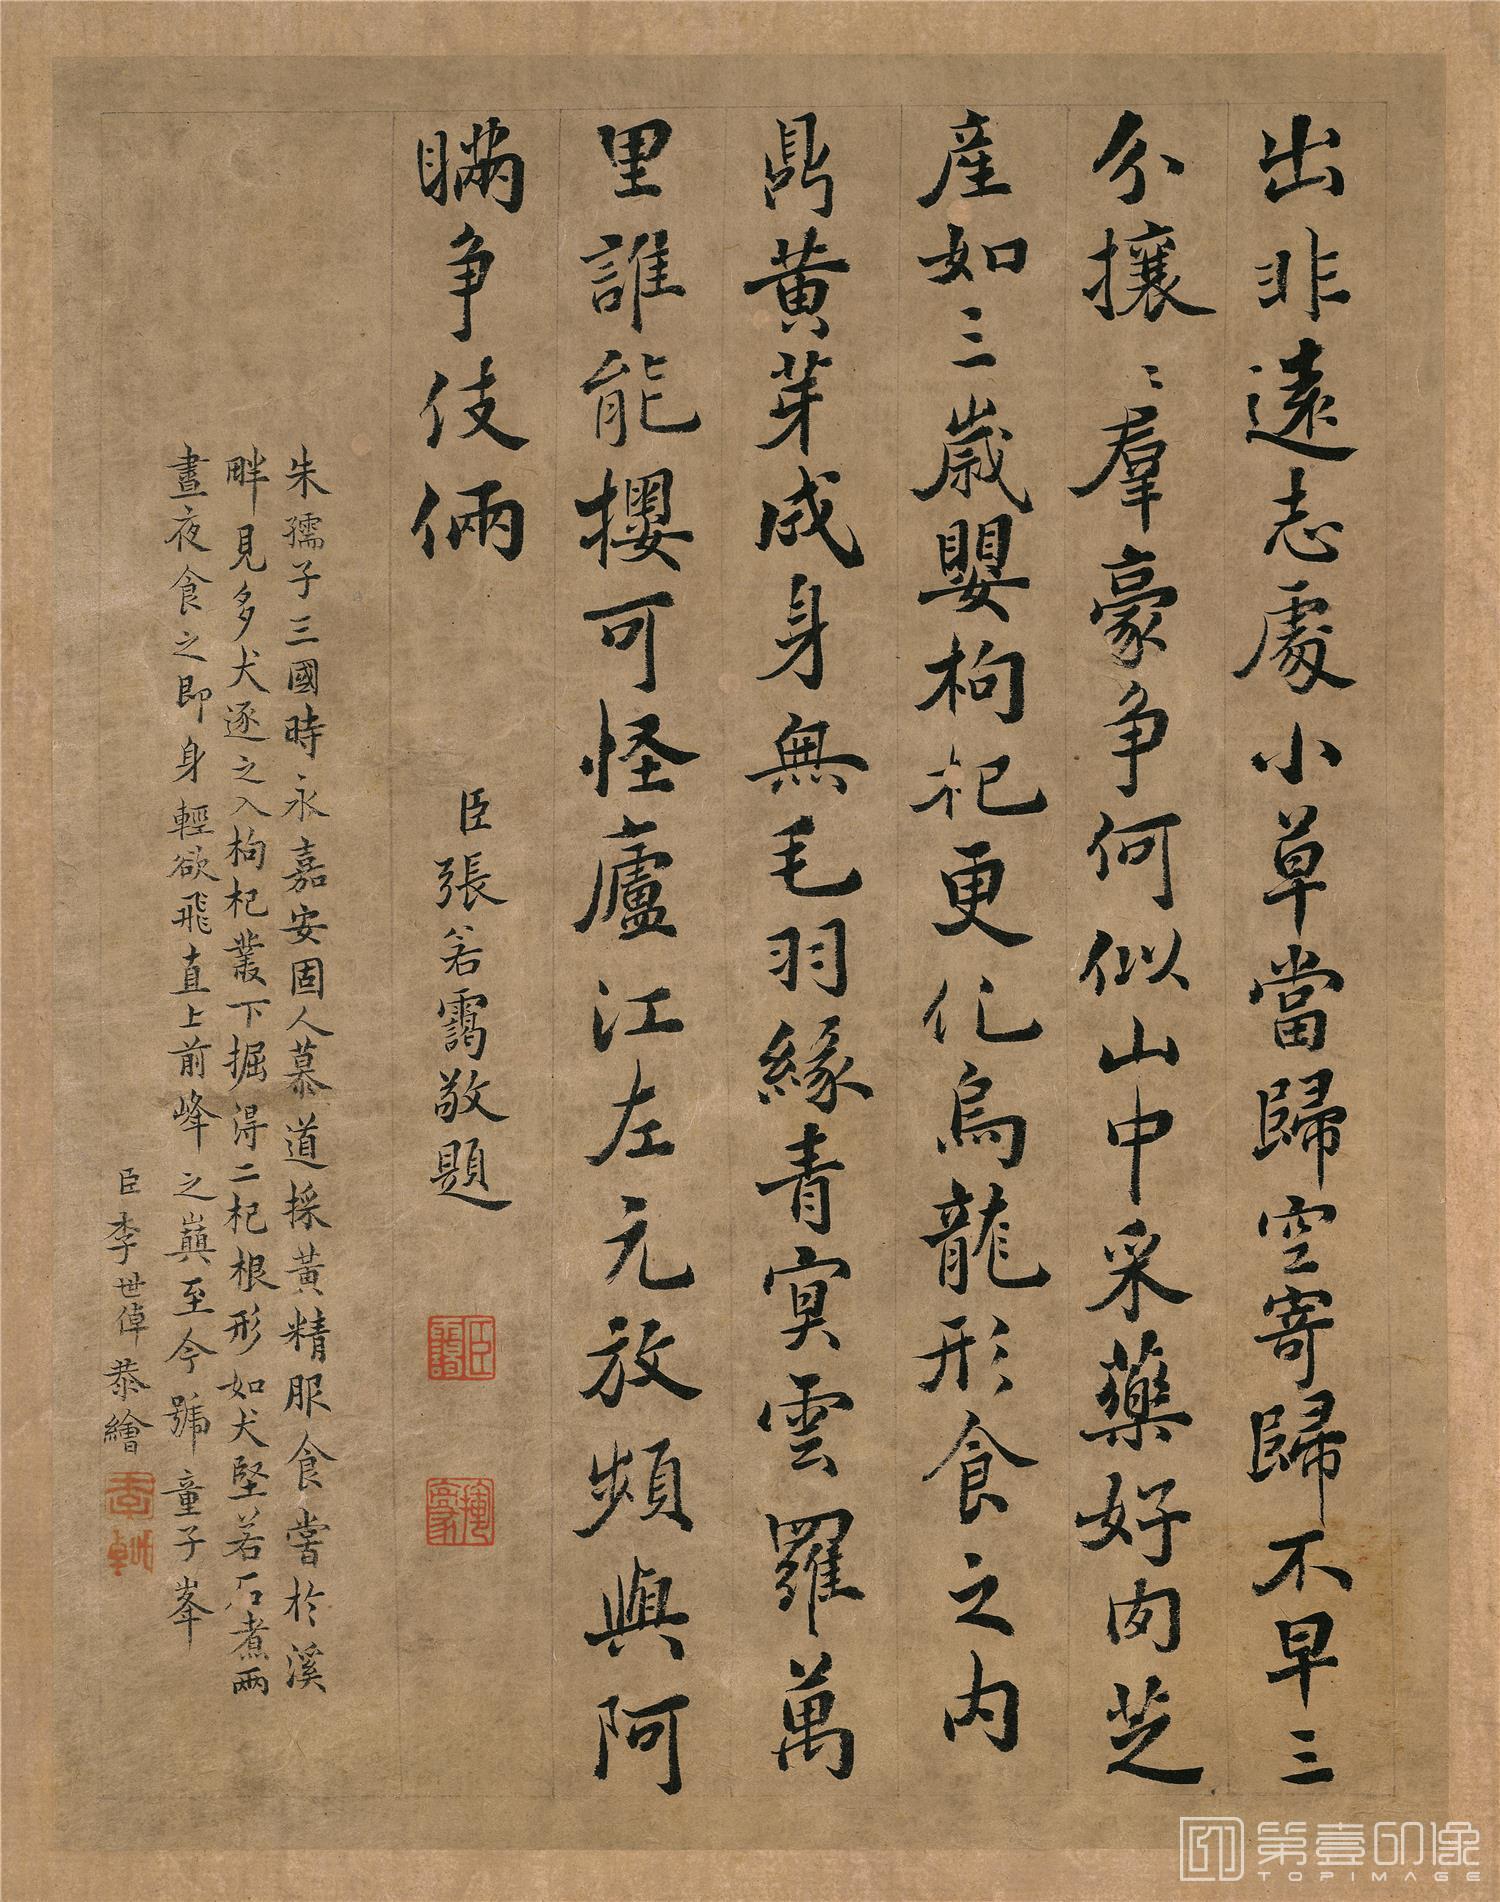 出非遠志處小草當歸空寄歸不早三
分攘〻羣豪争何似山中采藥好肉芝
産如三歲嬰枸杞更化烏龍形食之内
鼎黄芽成身無毛羽緣青冥雲羅萬
里誰能攖可怪廬江左元放頻與阿
瞞争伎倆
臣張若靄敬題
朱孺子三國時永嘉安固人慕道採黄精服食嘗於溪
畔見多犬逐之入枸杞叢下掘得二杞根形如犬堅若石煮兩
晝夜食之即身輕欲飛直上前峰之巔至今號童子峯
臣李世倬恭繪
第壹印像
TOPIMAGE